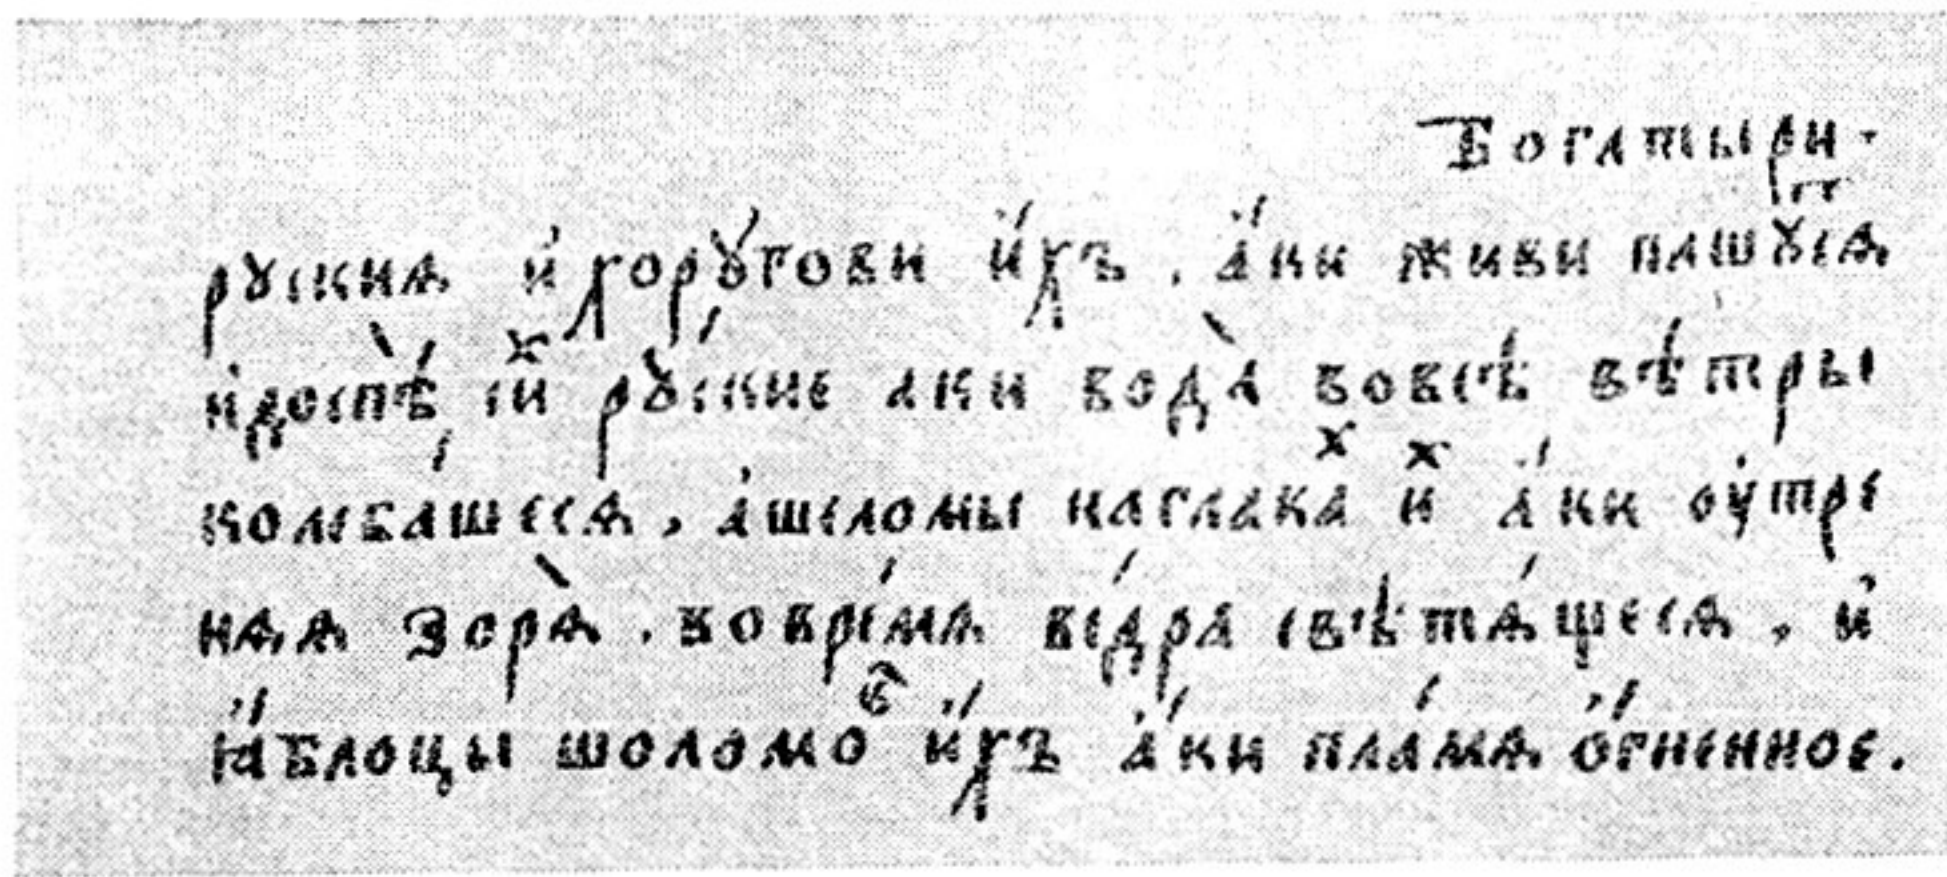 Богатыри·
рꙋскиѧ и҆ хорꙋ́гови и҆́хъ . а҆́ки живи пашꙋтсѧ
и҆доспѣ́ сиⷯ рꙋ́ские аки вода̀ вовсѣ вѣтры
колеба́шесѧ , а҆шеломы наглаваⷯ иⷯ а҆́ки ᲂу҆тре
наѧ зорѧ̀ . вовре́мѧ ве́дра свѣтѧ́щесѧ , и҆
ꙗ҆́блоцы шоломоⷡ҇ и҆́хъ а҆́ки пла́мѧ ѻ҆́гненное .